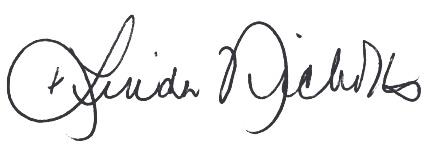 Linda Nicholls